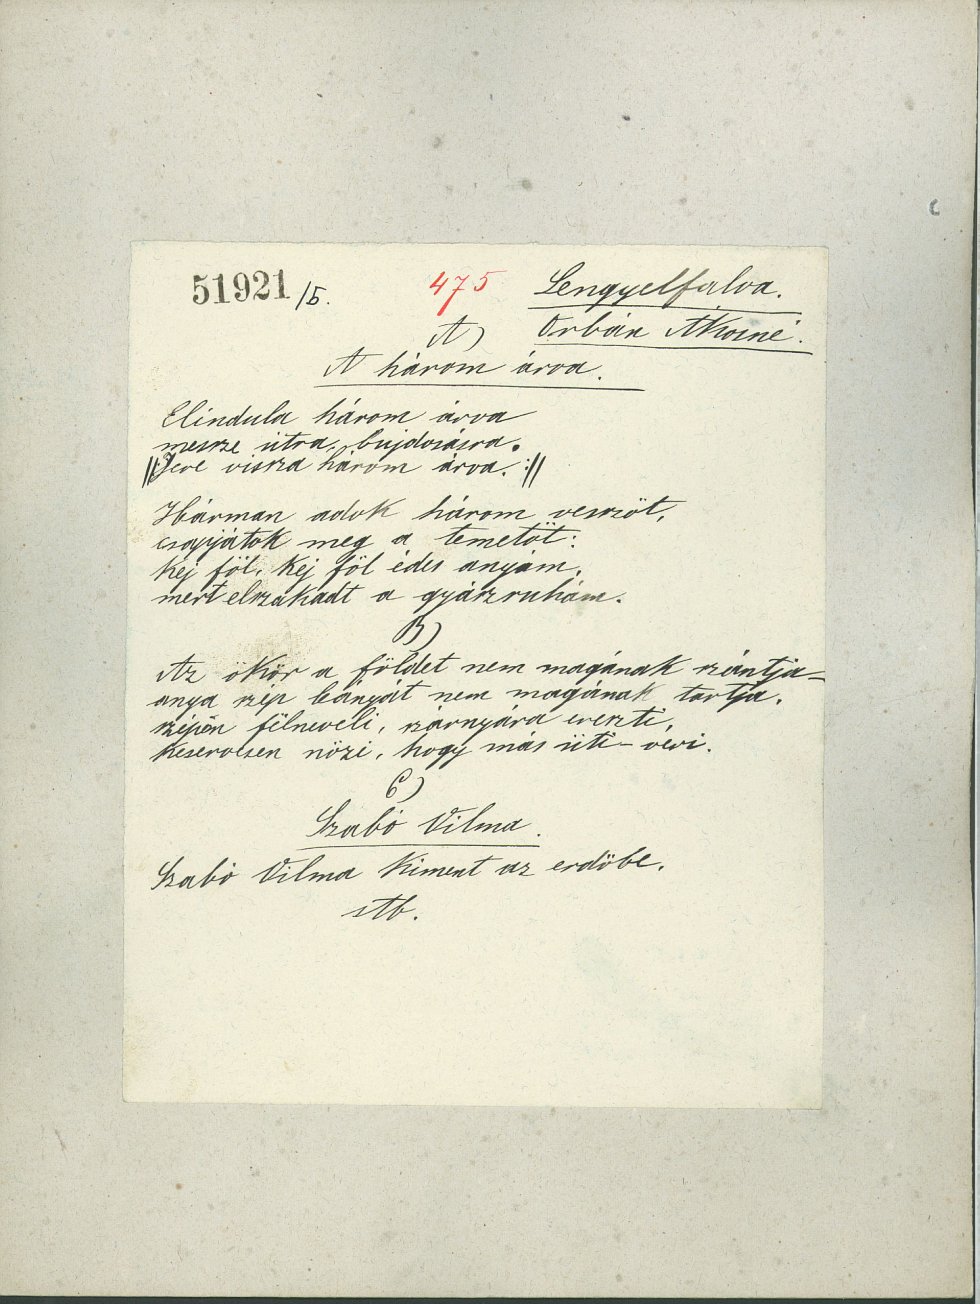 51921 /5. 475 Lengyelfalva.
Orbán Ákosné.
A)
A három árva.
Elindula három árva
messze útra, bujdosásra.
||: Jere vissza három árva. :||
Hárman adok három vesszőt,
csapjátok meg a temetőt:
Kej föl, Kej föl édes anyám,
mert elszakadt a gyászruhám.
B)
Az ökör a földet nem magának szántja –
anya szép leányát nem magának tartja,
szépen fölneveli, szárnyára ereszti,
keservesen nözi, hogy más üti – véri.
C)
Szabó Vilma.
Szabó Vilma Kiment az erdőbe,
stb.